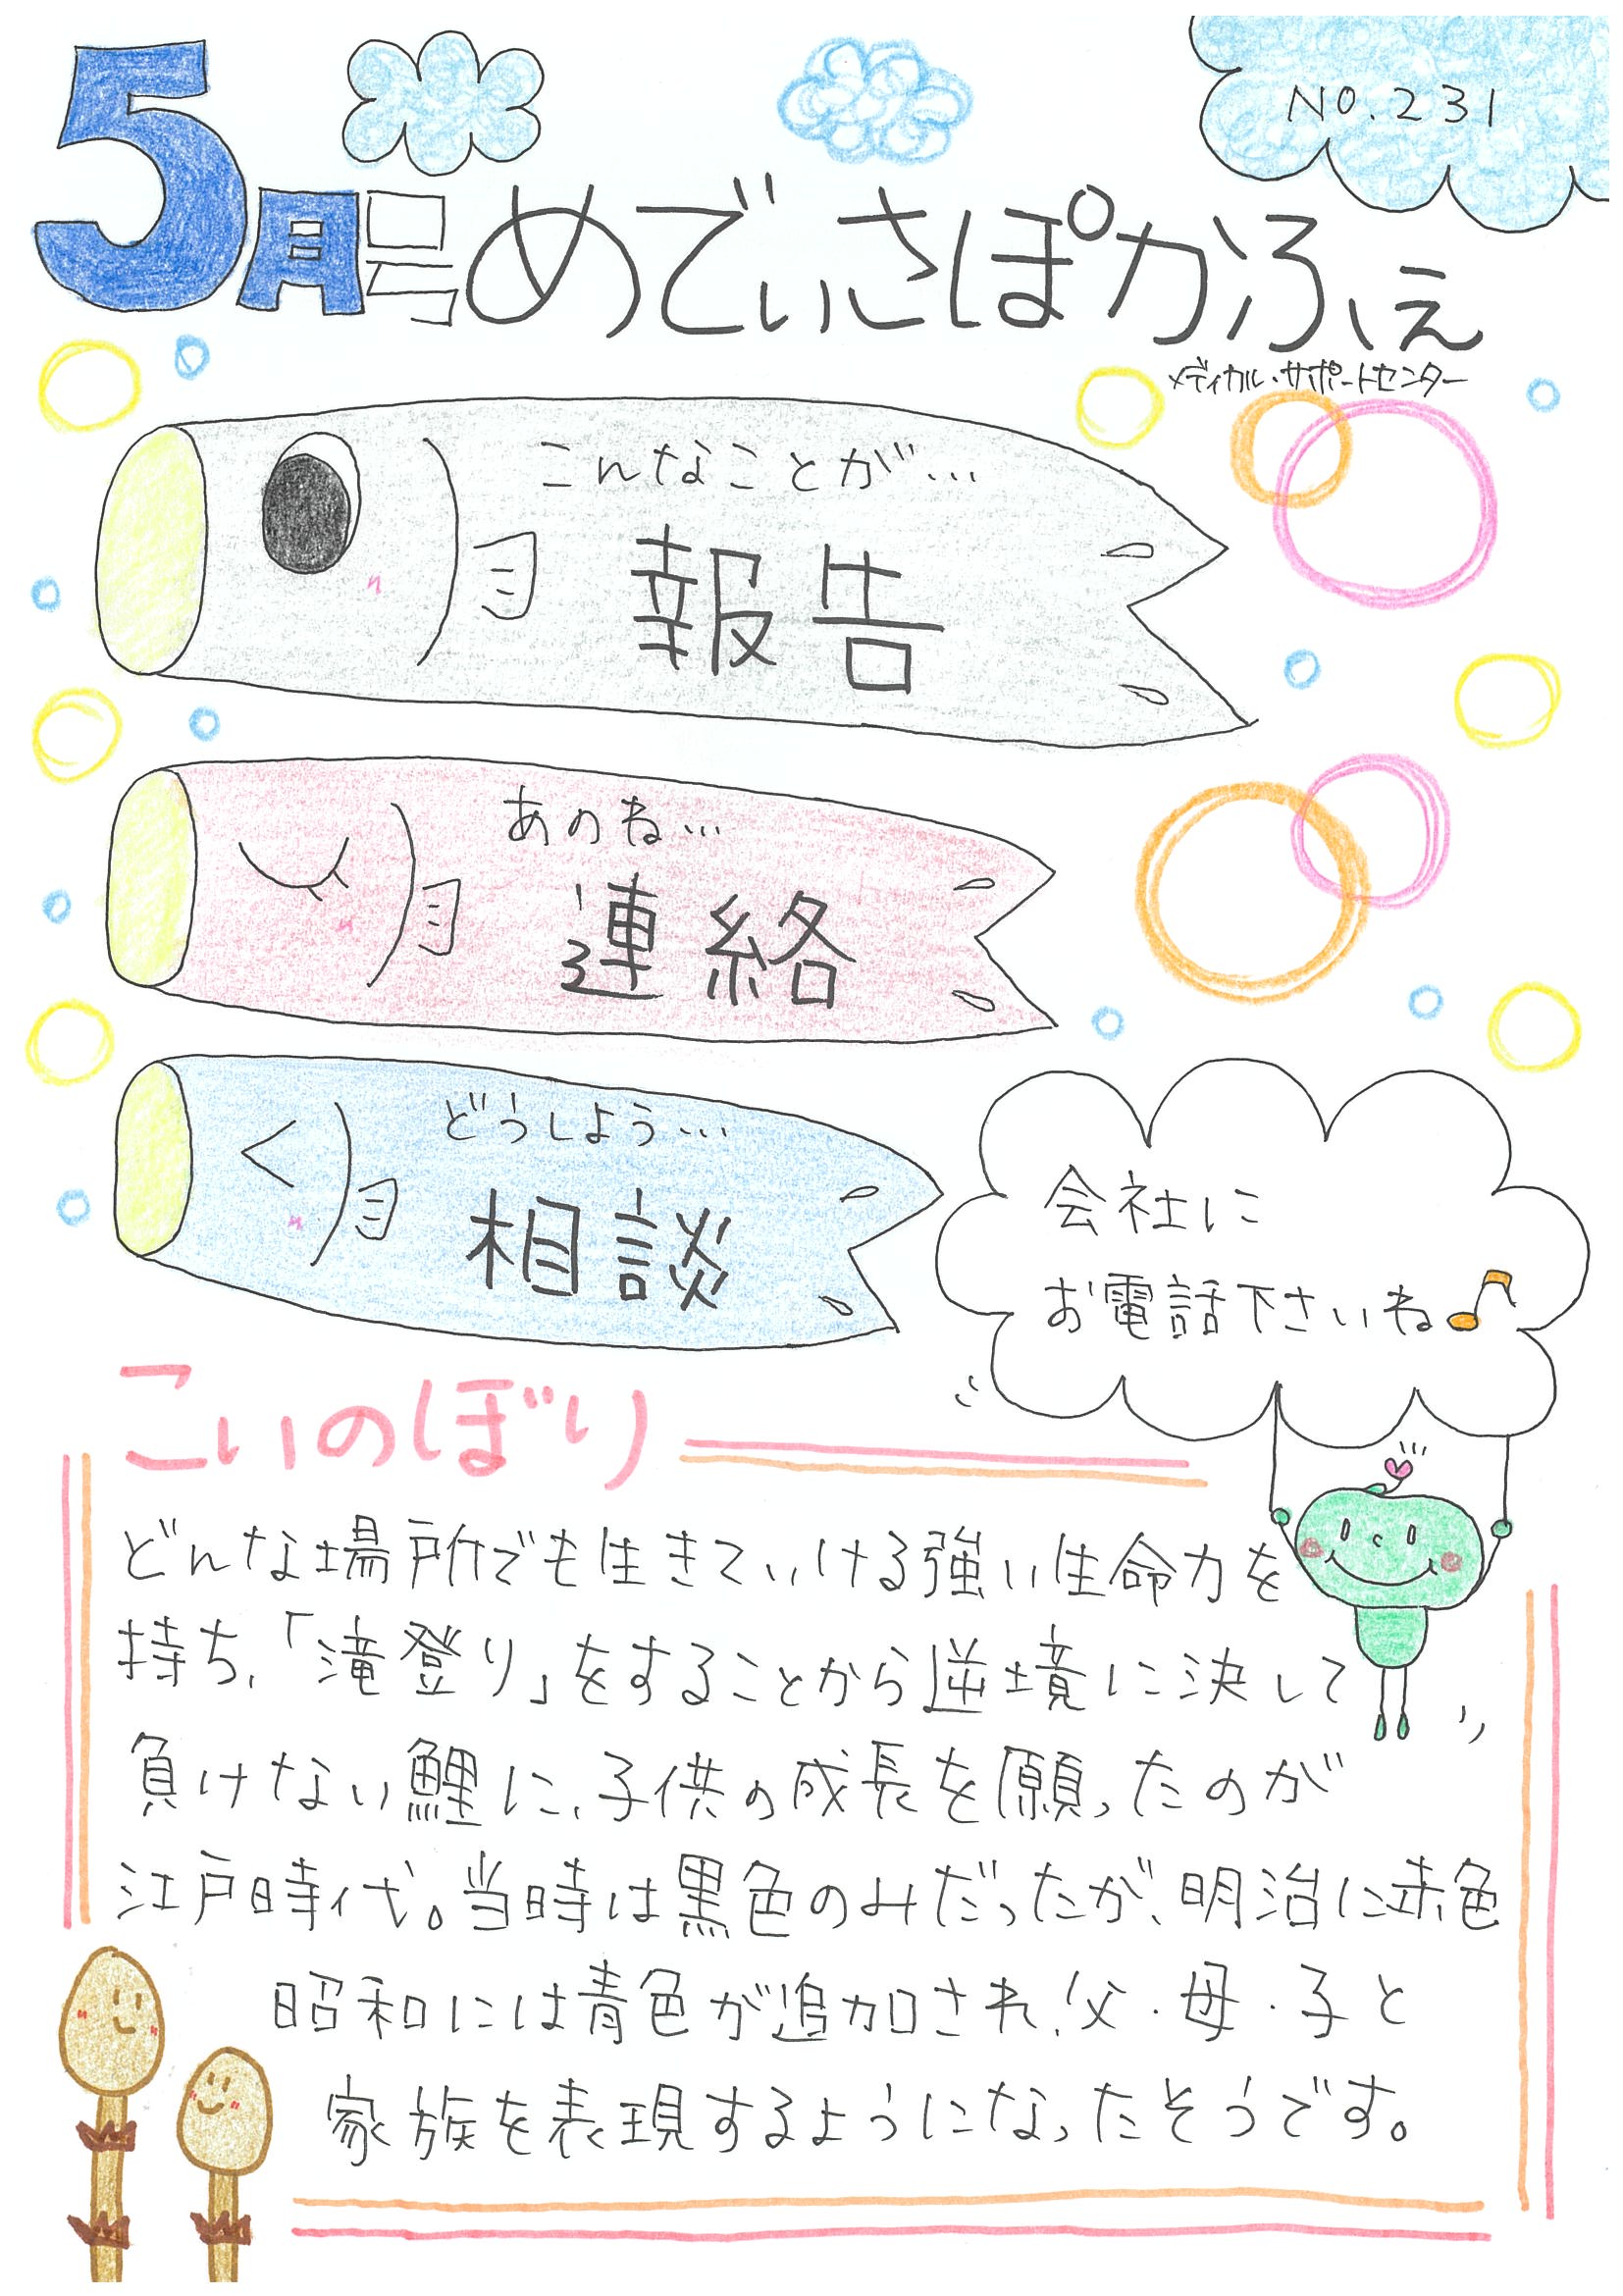 NO.231
5月号 めでぃさぽかふぇ
メディカル・サポートセンター
こんなことが…
報告
あのね…
連絡
どうしよう…
相談
会社に
お電話下さいね♪
こいのぼり
どんな場所でも生きていける強い生命力を
持ち、「滝登り」をすることから逆境に決して
負けない鯉に、子供の成長を願ったのが
江戸時代。当時は黒色のみだったが、明治に赤色
昭和には青色が追加され、父・母・子と
家族を表現するようになったそうです。